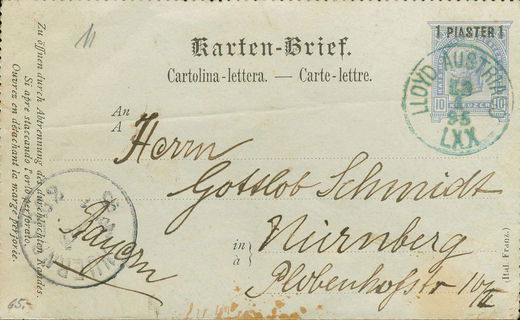 Karten-Brief.
Cartolina-lettera. — Carte-lettre.
1 PIASTER 1
10 KREUZER 10
LLOYD AUSTRIACO
LXX
An
A
Herrn
Gottlob Schmidt
in
à
Nürnberg
Bayern
Zu öffnen durch Abtrennung des durchlochten Randes.
Si apre staccando l'orlo perforato.
Ouvrez en détachant la marge perforée.
(Ital. Franz.)
65.-
11